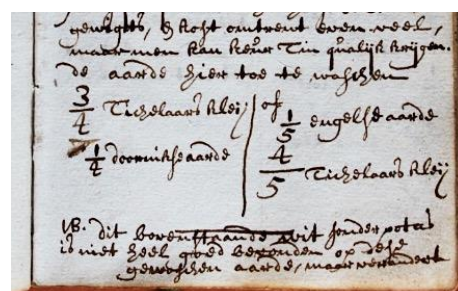 gewigte, 't kost omtrent even veel,
maar men kan keur Tin qualijk krijgen.
de aarde hier toe te wasschen
3/4 Tichelaars kleij | of 1/5 engelse aarde
1/4 doornikse aarde | 4/5 Tichelaars kleij
NB. dit bovenstaande wit sonder potas
is niet heel goed bevonden op dese
gewasschen aarde, maar verandert